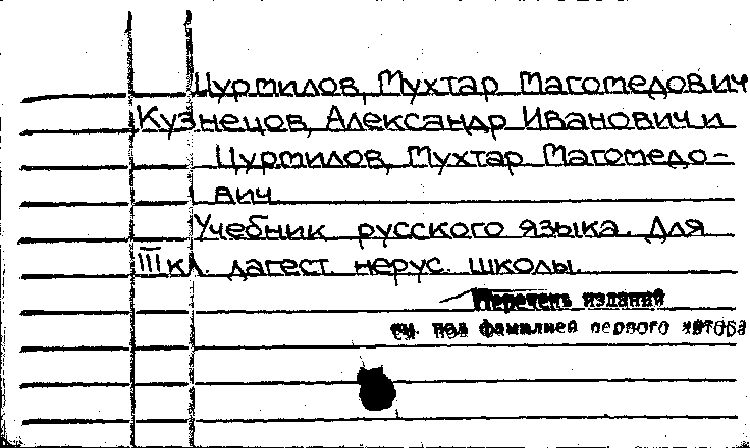 Цурмилов, Мухтар Магомедович
Кузнецов, Александр Иванович и
Цурмилов, Мухтар Магомедо-
вич
Учебник русского языка. Для
III кл. дагест. нерус. школы.
Перечень изданий
см. под фамилией первого автора